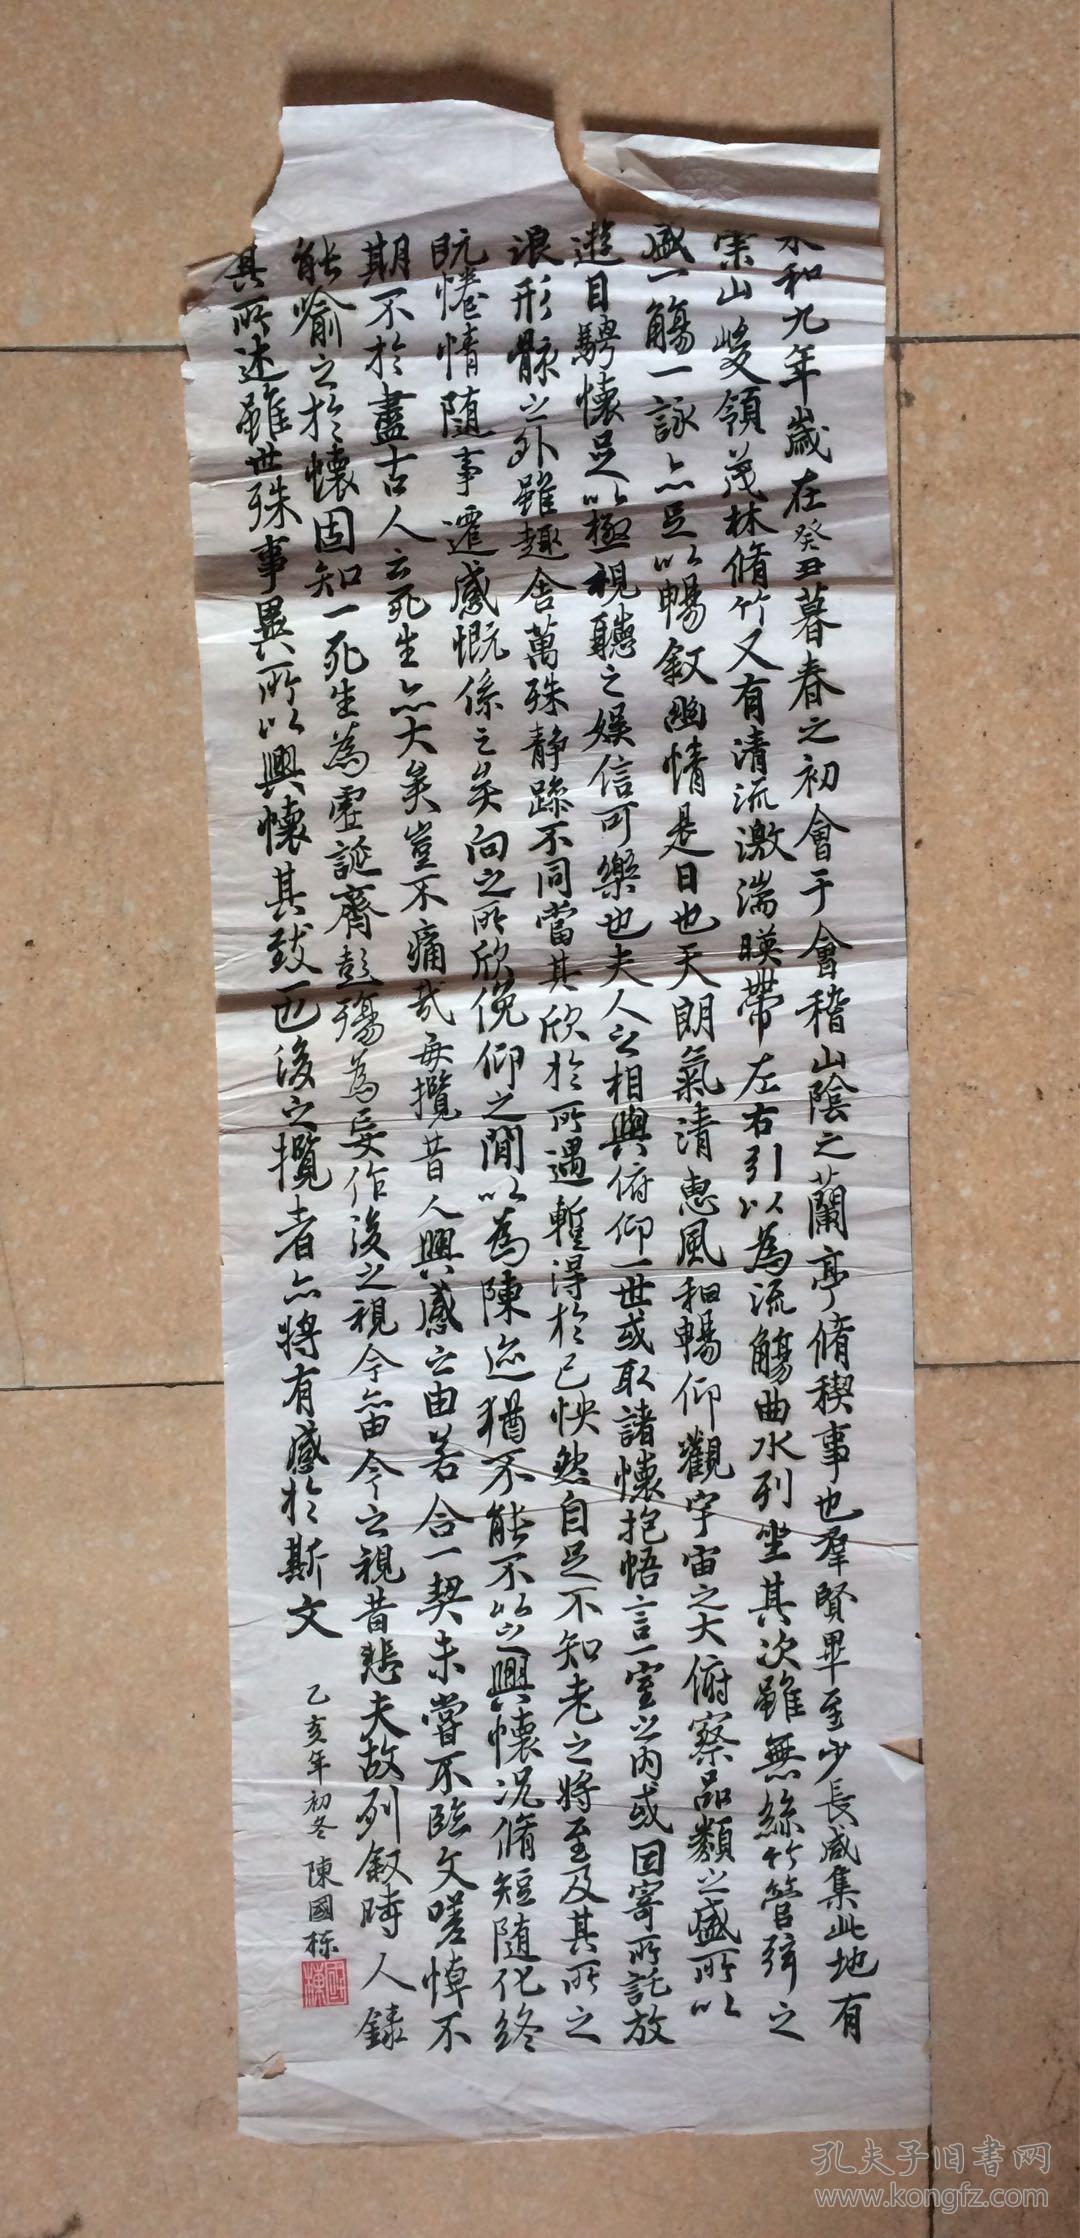 永和九年歲在癸丑暮春之初會于會稽山陰之蘭亭脩稧事也群賢畢至少長咸集此地有
崇山峻領茂林脩竹又有清流激湍暎帶左右引以為流觴曲水列坐其次雖無絲竹管弦之
盛一觴一詠亦足以暢叙幽情是日也天朗氣清惠風和暢仰觀宇宙之大俯察品類之盛所以
遊目騁懷足以極視聽之娛信可樂也夫人之相與俯仰一世或取諸懷抱悟言一室之內或因寄所託放
浪形骸之外雖趣舍萬殊静躁不同當其欣於所遇暫得於己怏然自足不知老之將至及其所之
既惓情隨事遷感慨係之矣向之所欣俛仰之間以為陳迹猶不能不以之興懷況脩短隨化終
期不於盡古人云死生亦大矣豈不痛哉每攬昔人興感之由若合一契未嘗不臨文嗟悼不
能喻之於懷固知一死生為虛誕齊彭殤為妄作後之視今亦由今之視昔悲夫故列叙時人錄
其所述雖世殊事異所以興懷其致一也後之攬者亦將有感於斯文
乙亥年初冬 陳國棟
國棟
孔夫子旧书网
www.kongfz.com